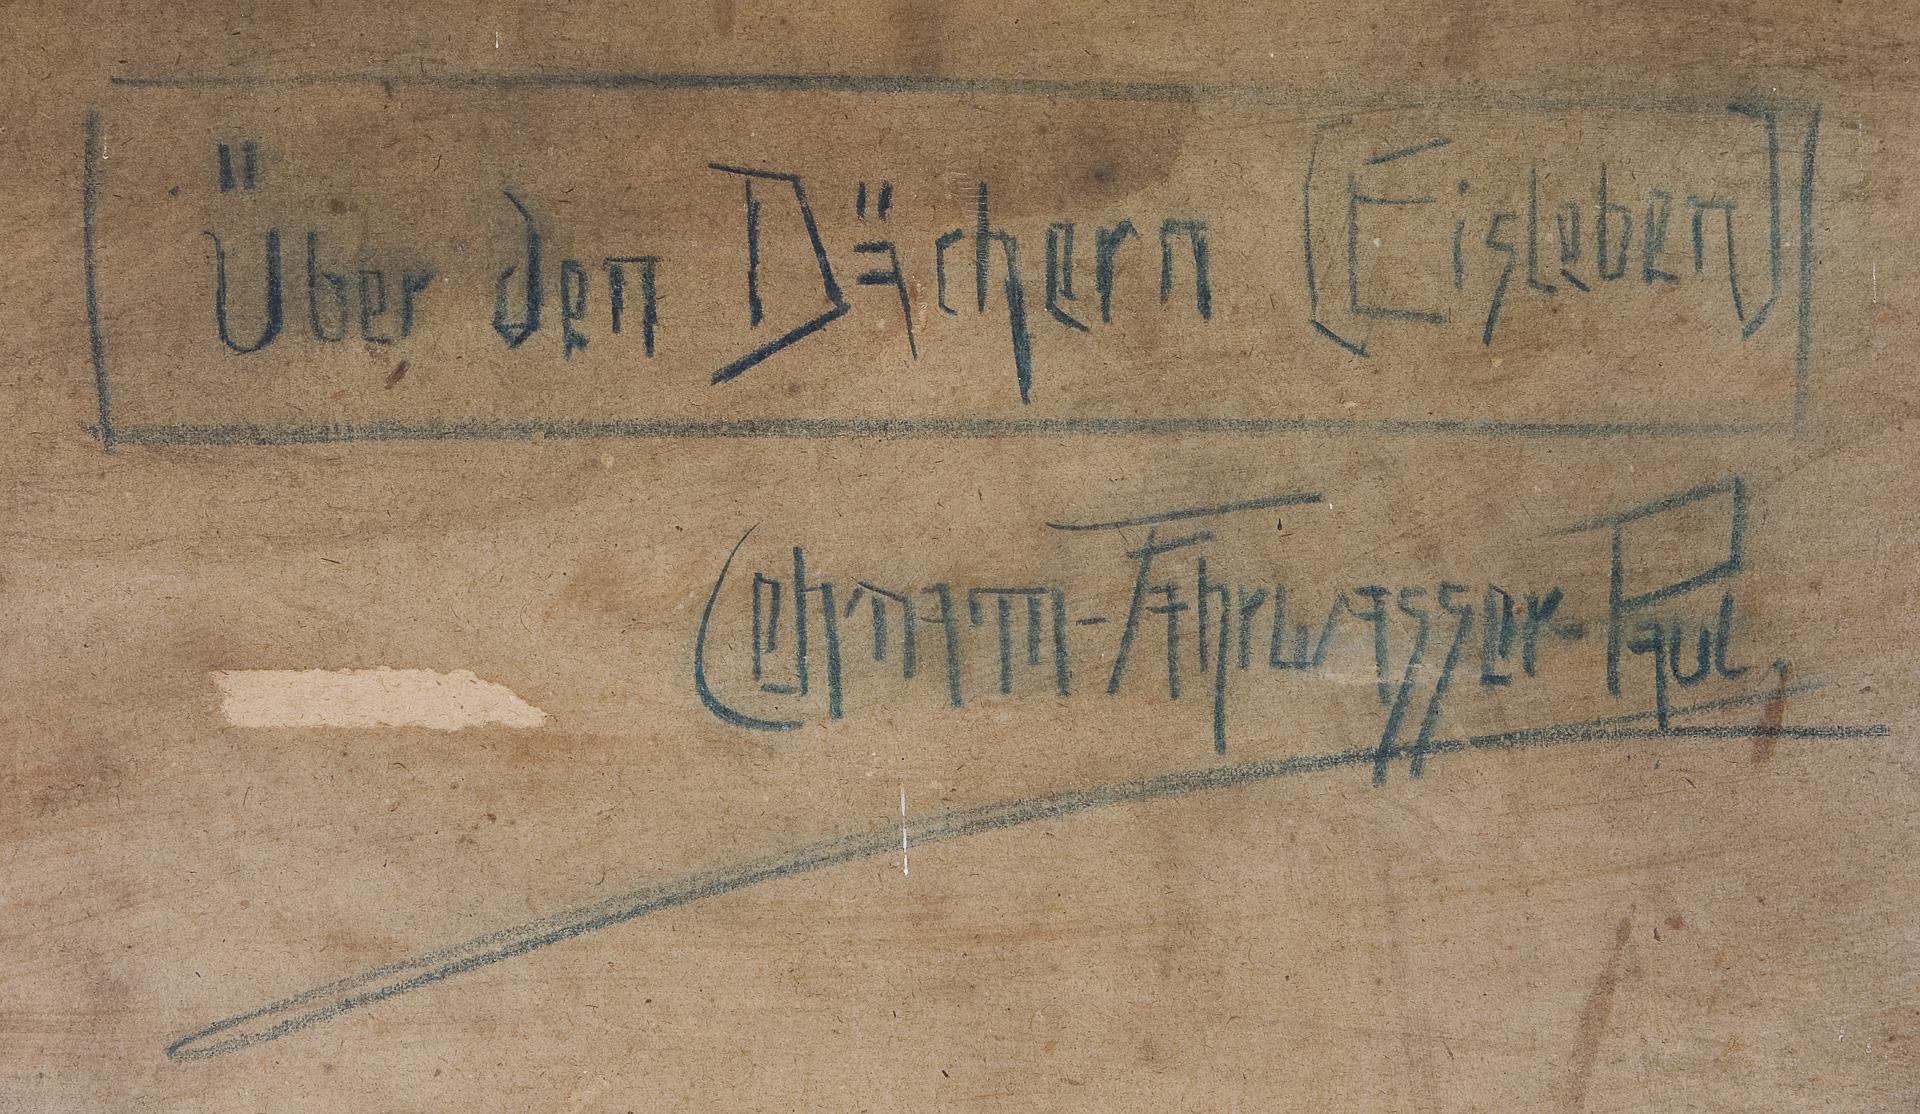 Über den Dächern (Eisleben)
Lehmann-Fahrwasser-Paul.